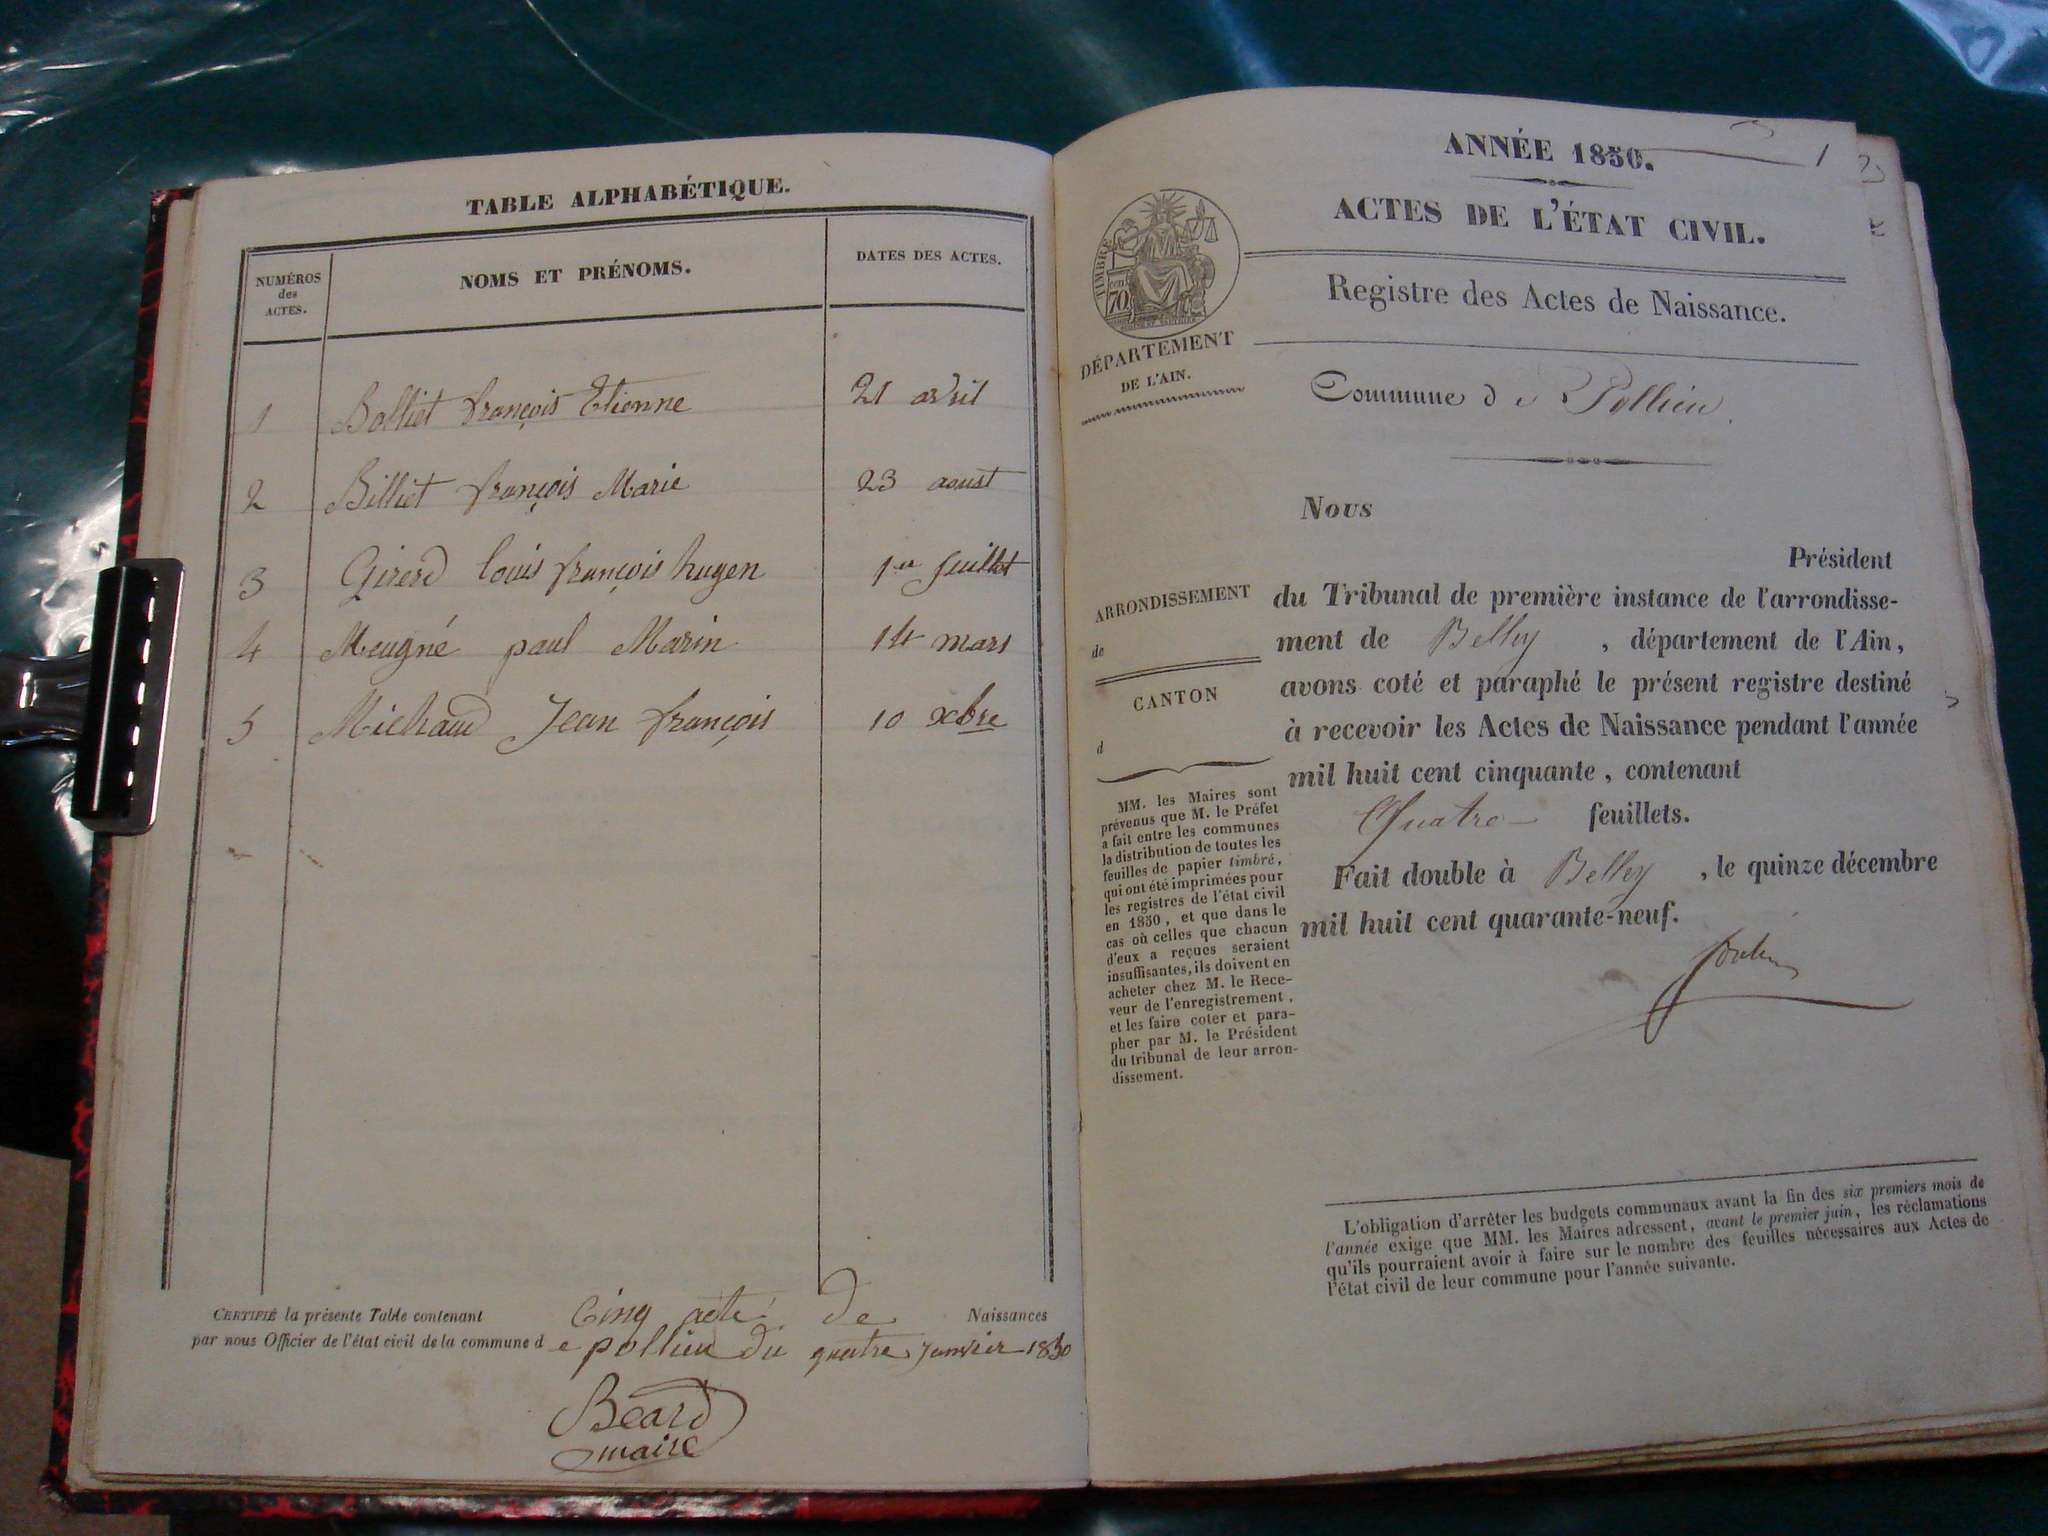 TABLE ALPHABÉTIQUE.
NUMÉROS
des
ACTES.
NOMS ET PRÉNOMS.
DATES DES ACTES.
1 Bolliet françois Etienne 21 avril
2 Billiet françois Marie 23 aoust
3 Girerd louis françois hugen 1er Juillet
4 Meugné paul Marin 14 mars
5 Michaud Jean françois 10 xbre
CERTIFIÉ la présente Table contenant Cinq acte de Naissances
par nous Officier de l'état civil de la commune de pollieu du quatre Janvier 1850
Béard
maire
ANNÉE 1850.
1
ACTES DE L'ÉTAT CIVIL.
Registre des Actes de Naissance.
TIMBRE
70
DÉPARTEMENT
DE L'AIN.
Commune de Pollieu
Nous
Président
du Tribunal de première instance de l'arrondisse-
ment de Belley, département de l'Ain,
avons coté et paraphé le présent registre destiné
à recevoir les Actes de Naissance pendant l'année
mil huit cent cinquante, contenant
Quatre feuillets.
Fait double à Belley, le quinze décembre
mil huit cent quarante-neuf.
ARRONDISSEMENT
de
CANTON
d
MM. les Maires sont
prévenus que M. le Préfet
a fait entre les communes
la distribution de toutes les
feuilles de papier timbré,
qui ont été imprimées pour
les registres de l'état civil
en 1850, et que dans le
cas où celles que chacun
d'eux a reçues seraient
insuffisantes, ils doivent en
acheter chez M. le Rece-
veur de l'enregistrement,
et les faire coter et para-
pher par M. le Président
du tribunal de leur arron-
dissement.
L'obligation d'arrêter les budgets communaux avant la fin des six premiers mois de
l'année exige que MM. les Maires adressent, avant le premier juin, les réclamations
qu'ils pourraient avoir à faire sur le nombre des feuilles nécessaires aux Actes de
l'état civil de leur commune pour l'année suivante.